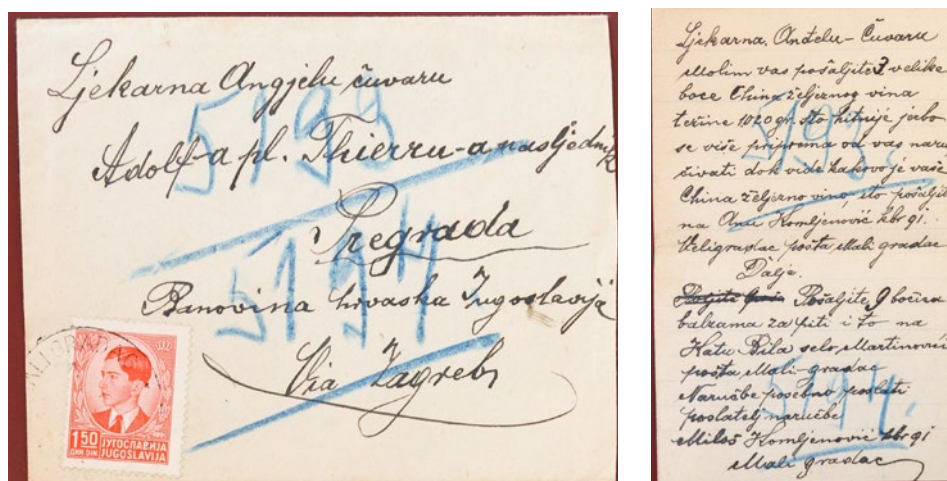 Ljekarna Angjelu čuvaru
Adolf-a pl. Thierry-a nasljednik
Pregrada
Banovina hrvaska Jugoslavija
Via Zagreb
5193
5194
1.50
ДИН DIN
ЈУГОСЛАВИЈА
JUGOSLAVIJA
Ljekarna. Anđelu - Čuvaru
Molim vas pošaljite 3 velike
boce China željeznog vina
težine 1020 gr. što hitnije jerbo
se više priprema od vas naru
čivati dok vide kakovo je vaše
China željezno vino, što pošaljite
na Anu Komljenović kbr 91.
Veligradac pošta Mali gradac
Dalje.
Pošaljite 9 bočica
balzama za piti i to na
Katu Bila selo, Martinovići
pošta, Mali-gradac
Naručbe posebno poslati
poslatelj naručbe
Miloš Komljenović kbr 91
Mali gradac
5193.
5194.